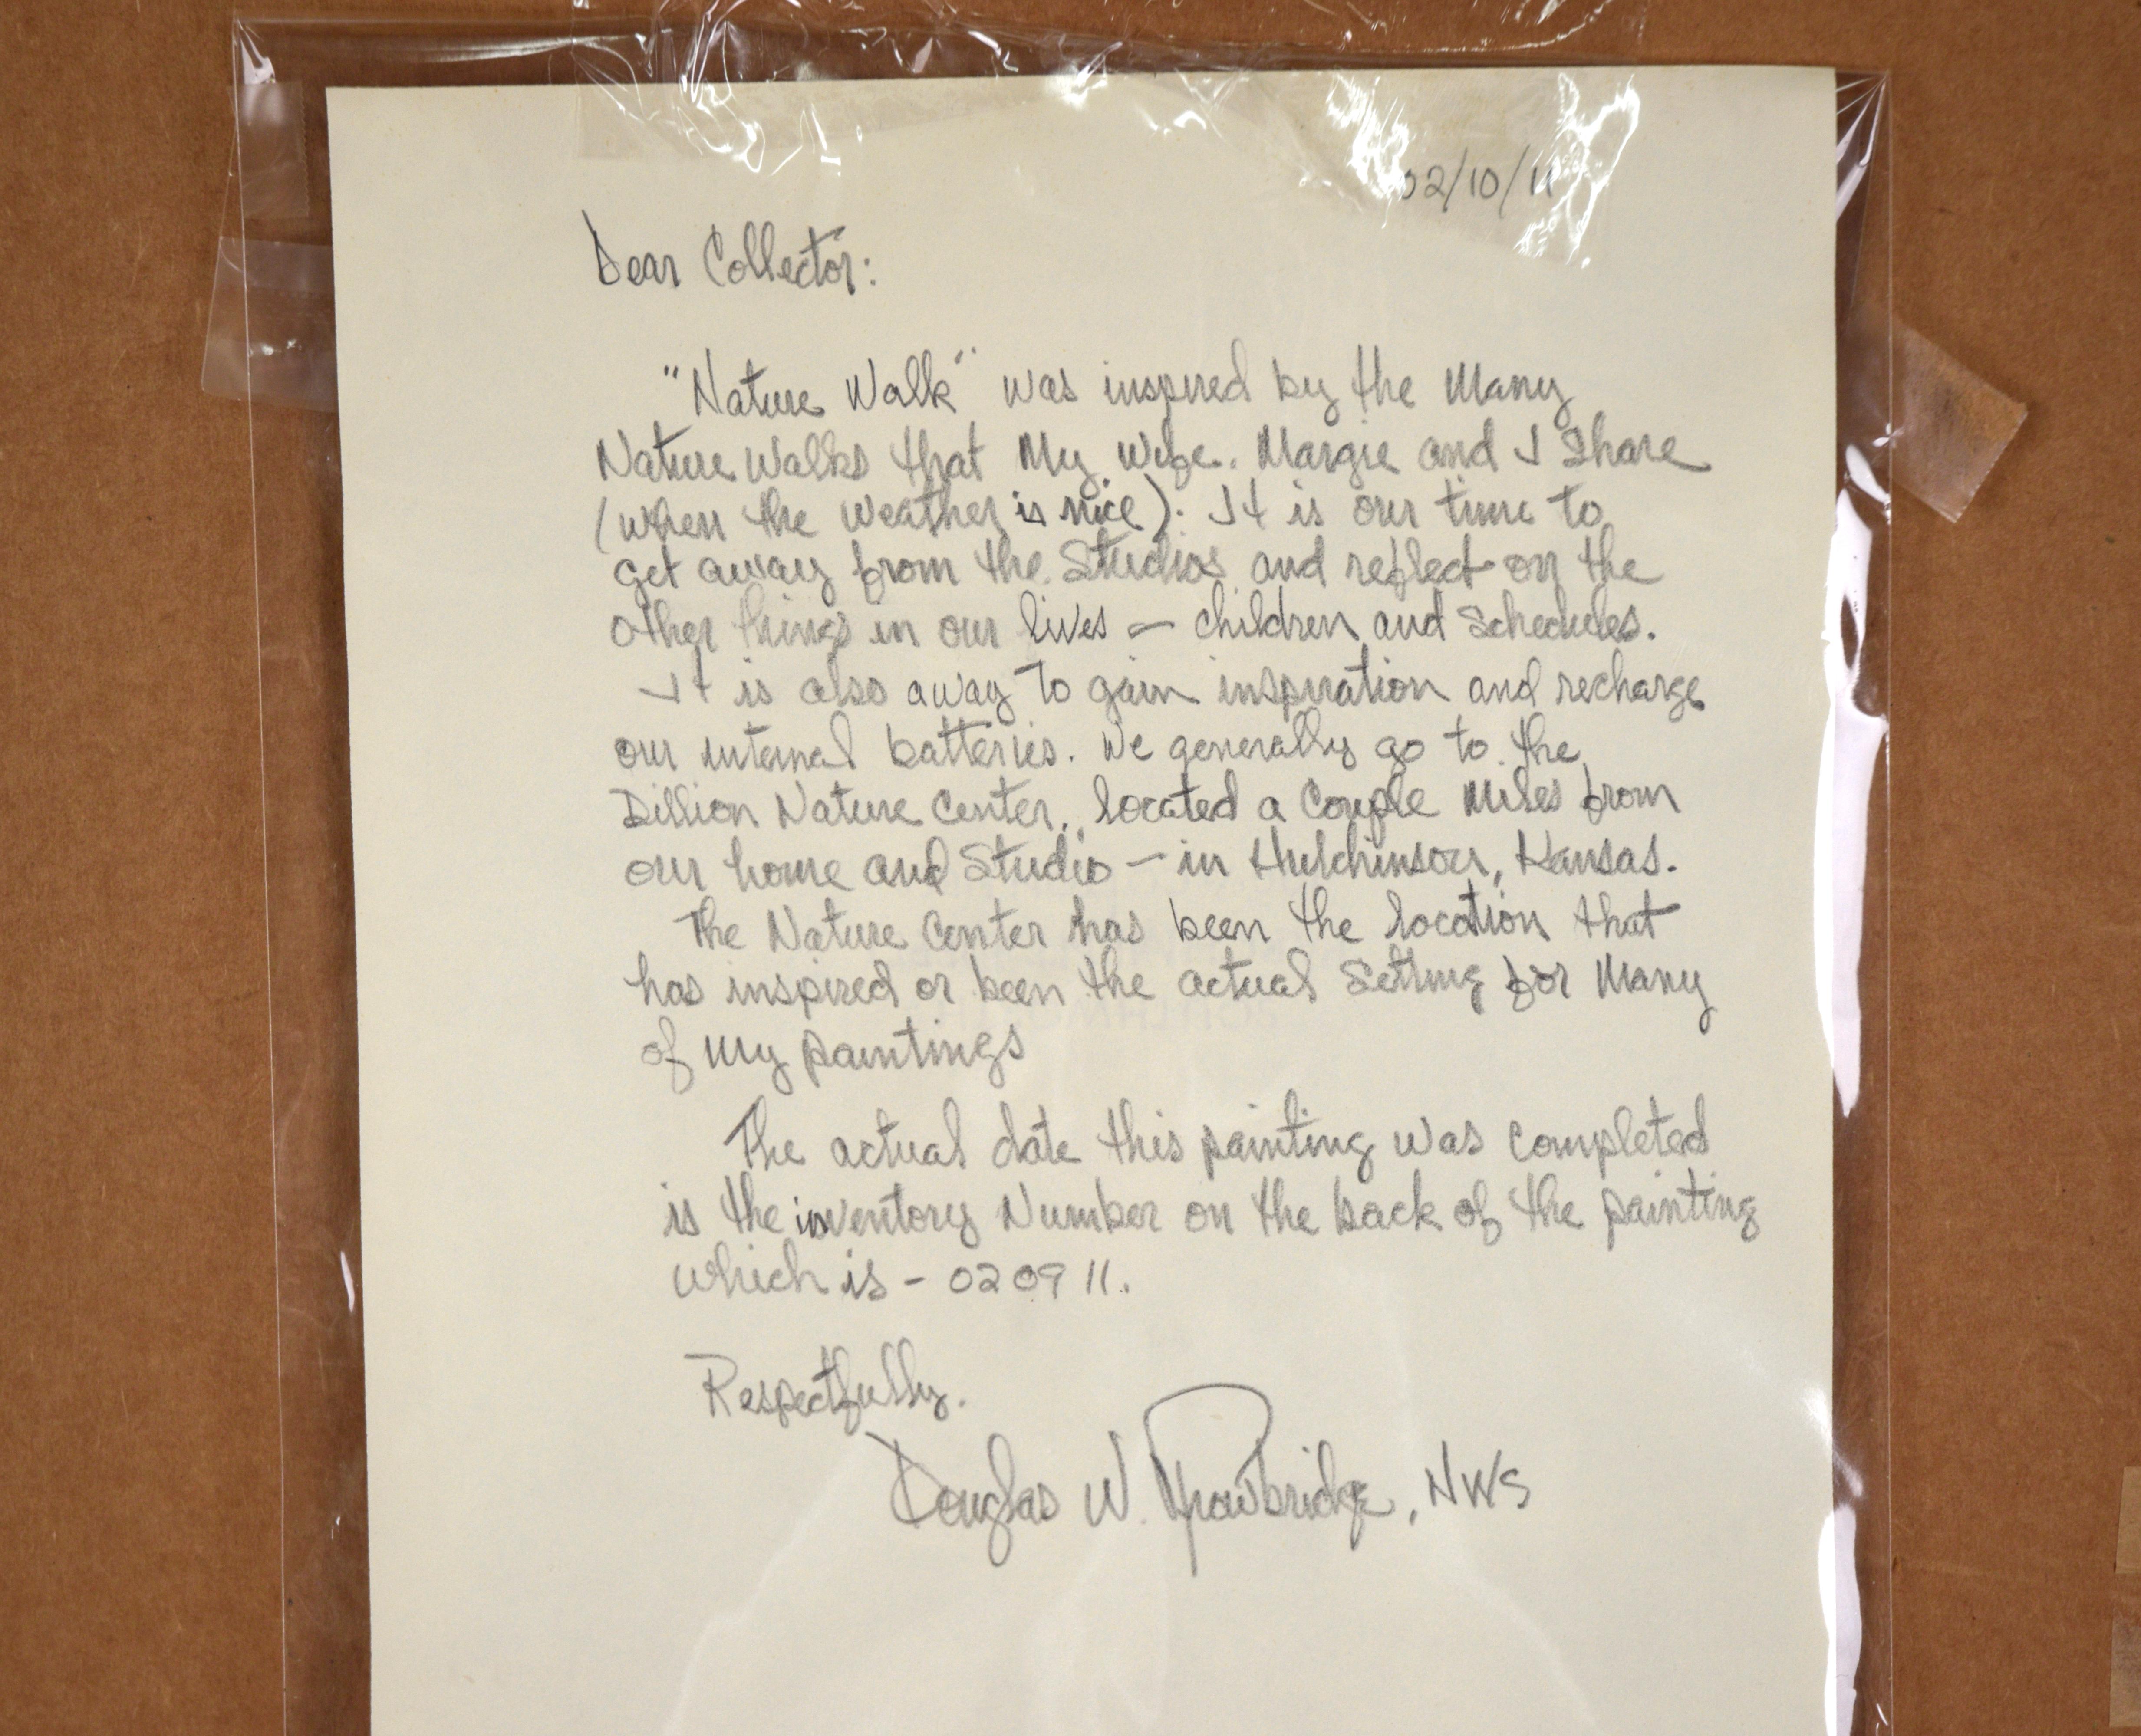 02/10/11
Dear Collector:
"Nature Walk" was inspired by the Many
Nature Walks that My wife. Margie and I Share
(when the weather is nice). It is our time to
get away from the Studios and reflect on the
other things in our lives – children and Schedules.
It is also away to gain inspiration and recharge
our internal batteries. We generally go to the
Dillion Nature Center, located a Couple Miles from
our home and Studio – in Hutchinson, Kansas.
The Nature Center has been the location that
has inspired or been the actual Setting for Many
of My paintings
The actual date this painting was completed
is the inventory Number on the back of the painting
which is – 020911.
Respectfully.
Douglas W. Trowbridge, NWS